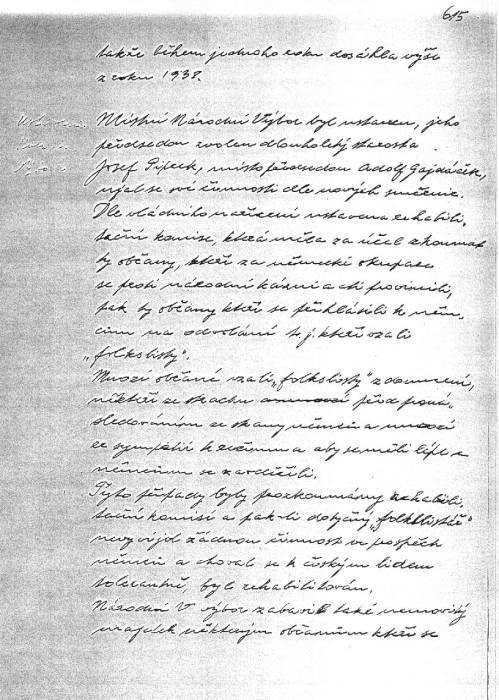 615
takže během jednoho roku dosáhla výše
z roku 1938.
Místní Národní Výbor byl ustaven, jeho
předsedou zvolen dlouholetý starosta
Josef, místopředsedou Adolf Gajdáček,
ujal se své činnosti dle nových směrnic.
Dle vládního nařízení ustavena rehabili-
tační komise, která měla za účel zkoumat
ty občany, kteří za německé okupace
se proti národní kázni a cti provinili,
pak ty občany kteří se přihlásili k něm-
cům na odvolání t.j. kteří vzali
„folkslisty".
Mnozí občané vzali „folkslisty" z donucení,
někteří ze strachu před proná-
sledováním ze strany němců a
ze sympatií k a aby se měli lépe a
němcům se zavděčili.
Tyto případy byly prozkoumány rehabili-
tační komisí a pak-li dotyčný „folkslistář"
nevyvíjel žádnou činnost ve prospěch
němců a choval se k českým lidem
tolerantně, byl rehabilitován.
Národní V výbor zabavil také nemovitý
majetek některým občanům kteří se